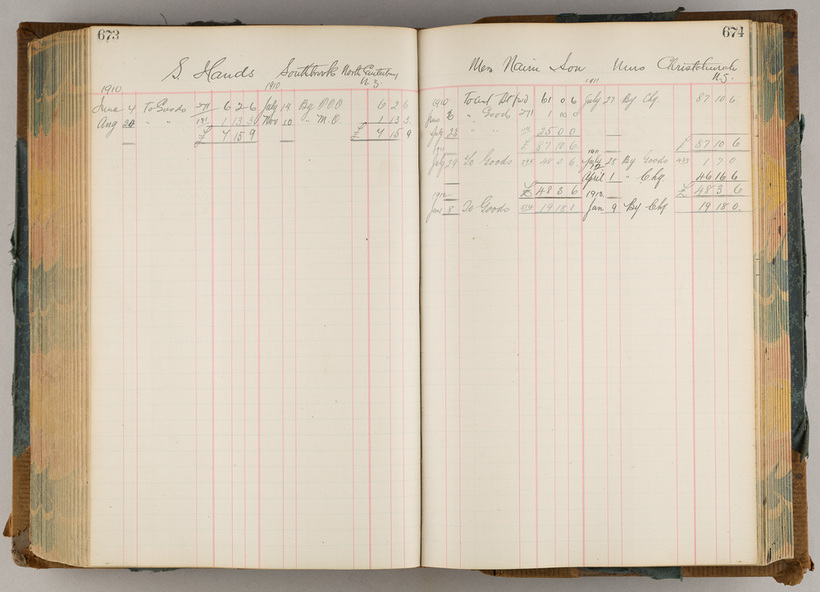 673
S Hands Southbrook North Canterbury N.Z.
1910 1910
June 4 To Goods 6 2 6 July 19 By P.O.O 6 2 6
Aug 30 " " 191 1 13 3 Nov 10 " M.O. 1 13 3
£ 7 15 9 £ 7 15 9
674
Mess Nairn Son Nurs Christchurch N.Z.
1911
1910 To act Bt fwd 61 0 6 July 27 By Chq 87 10 6
June 8 " Goods 271 1 10 0
July 23 " " 25 0 0
£ 87 10 6 £ 87 10 6
1911 1911
July 29 To Goods 48 3 6 July 25 By Goods 1 7 0
1912 April 1 " Chq 46 16 6
£ 48 3 6 £ 48 3 6
1912 1912
Jan 8 To Goods 19 18 0 Jan 9 By Chq 19 18 0